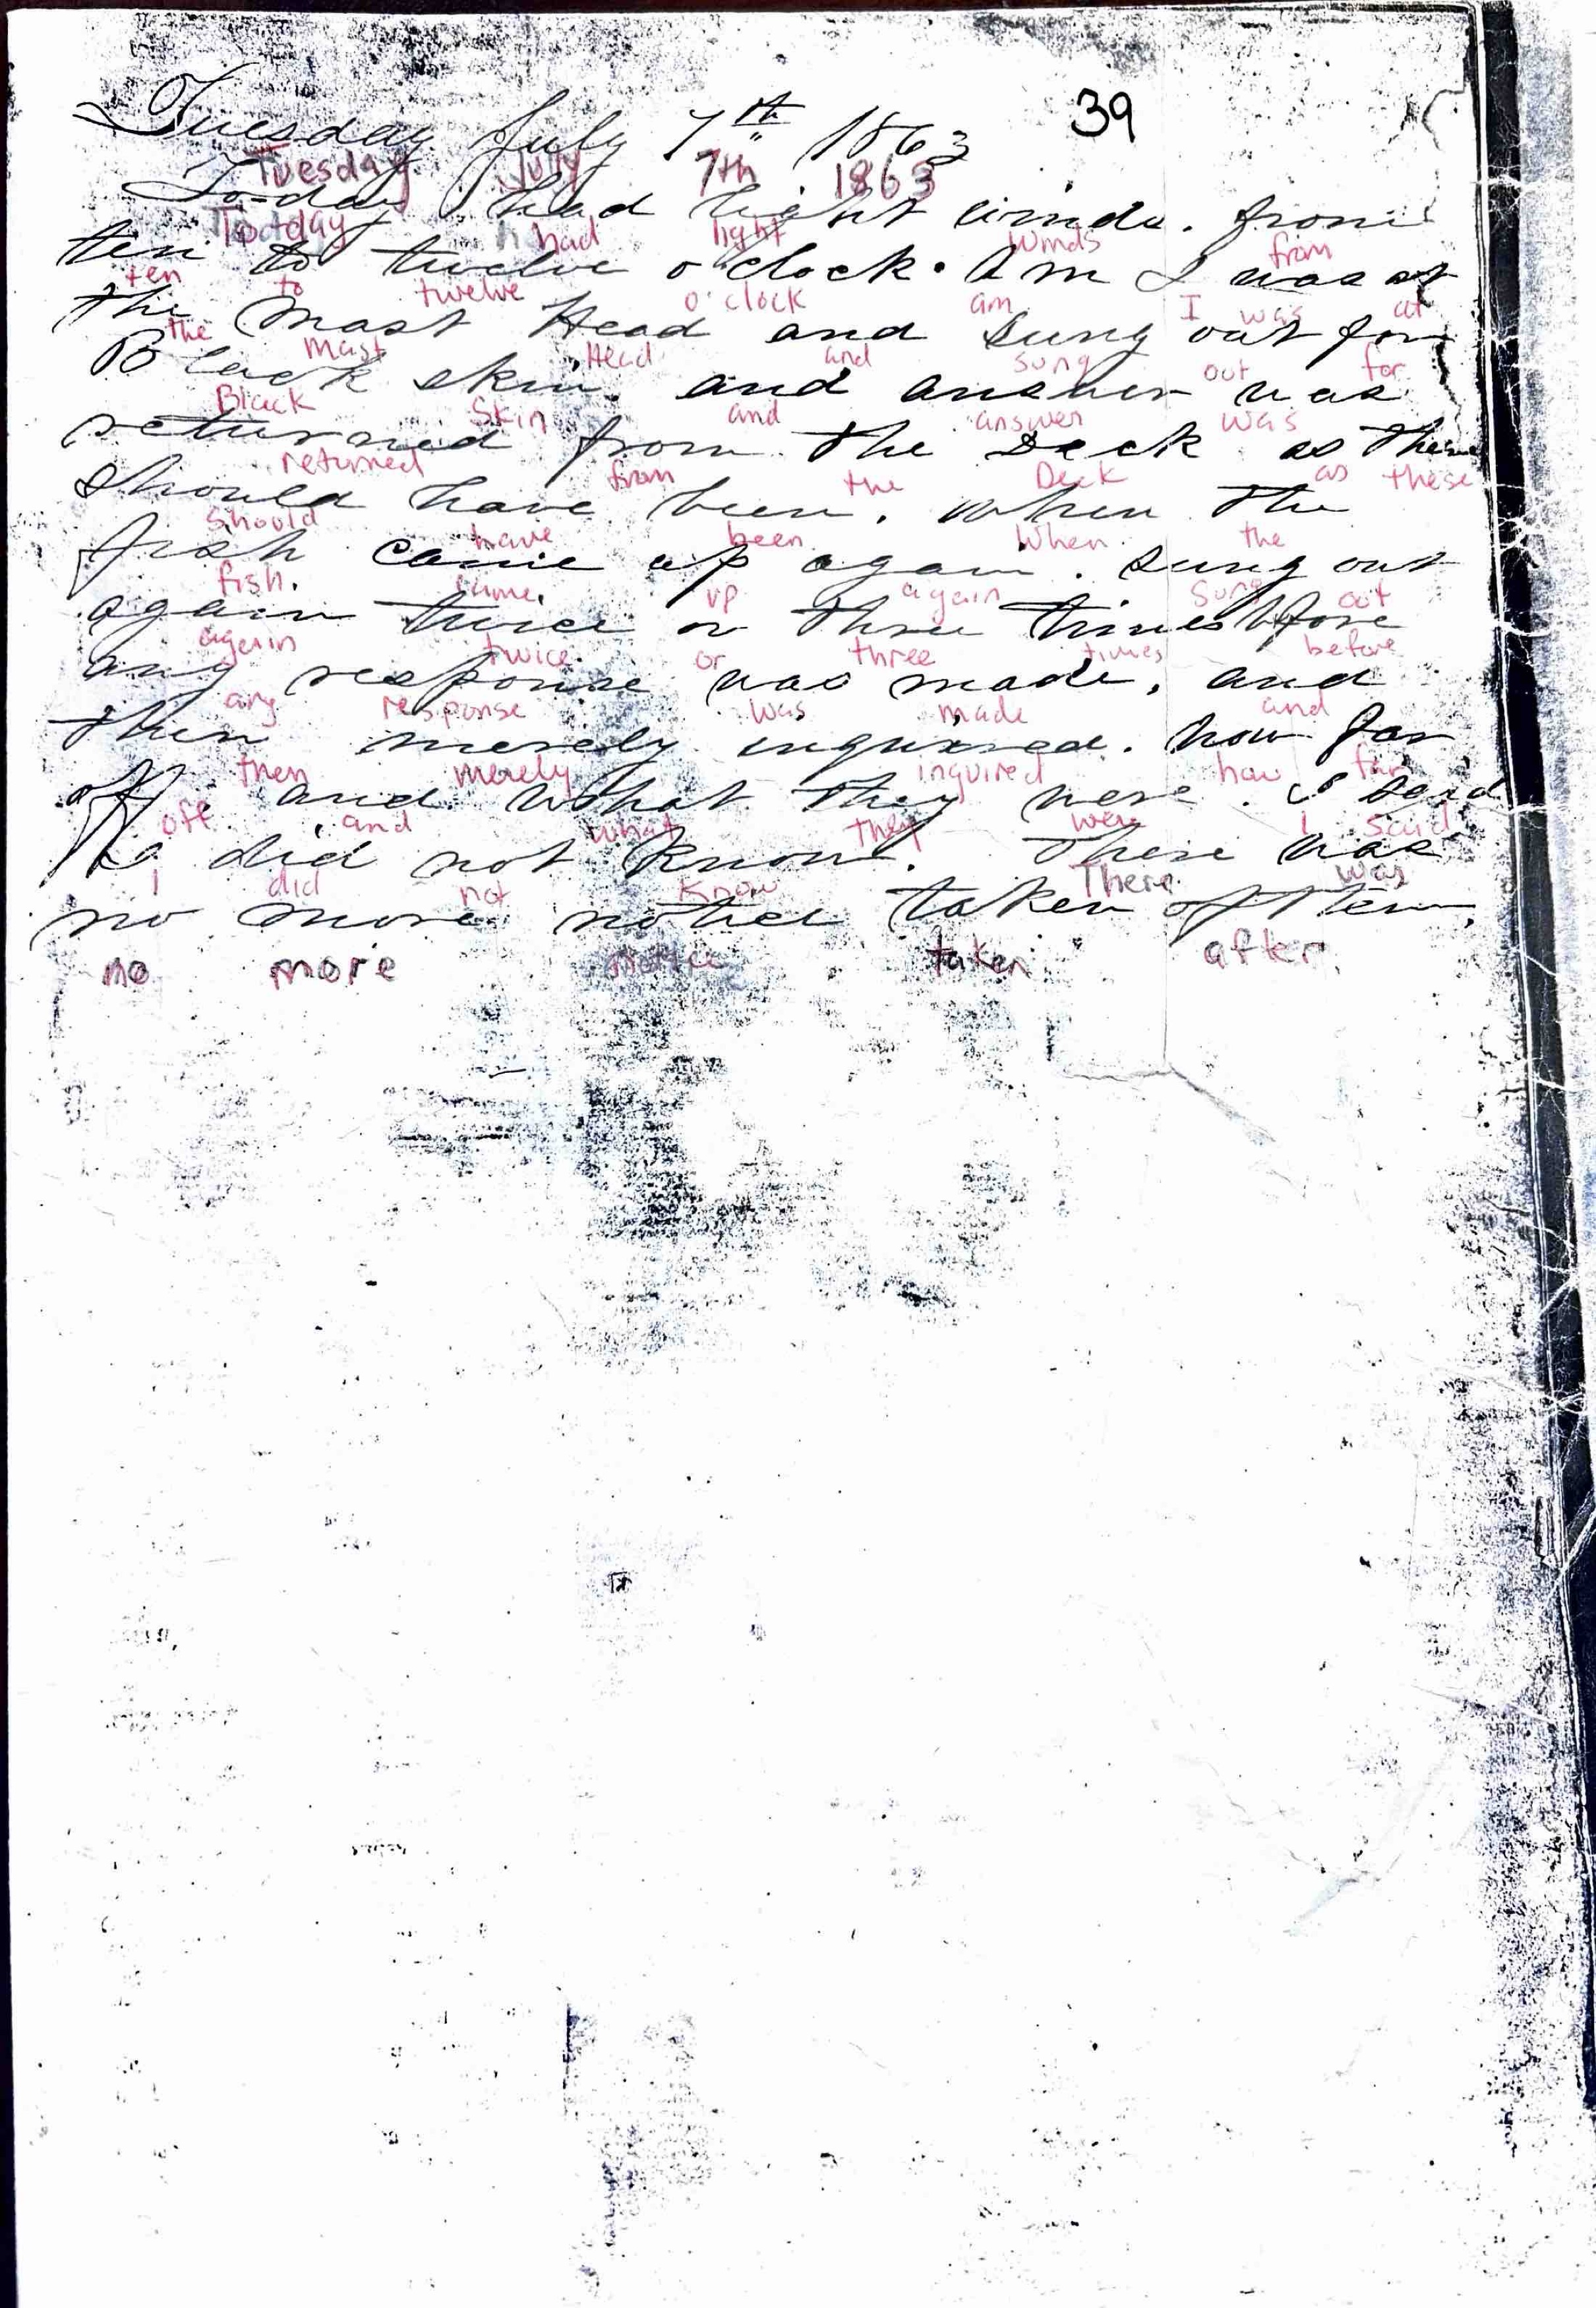 39
Tuesday July 7th 1863
Tuesday July 7th 1863
To-day had light winds. from
To-day had light winds from
ten to twelve o'clock. Am I was at
ten to twelve o'clock am I was at
the Mast Head and Sung out for
the Mast Head and Sung out for
Black skin and answer was
Black Skin and answer was
returned from the Deck as there
returned from the Deck as these
should have been. When the
should have been When the
fish came up again. Sung out
fish. came. up again Sung out
again twice or three times before
again twice or three times before
any response was made, and
any response was made and
then merely inquired. how far
then merely inquired how far
off and what they were. I said
off and what they were I said
I did not know. There was
I did not know There was
no more notice taken after.
no more notice taken after.